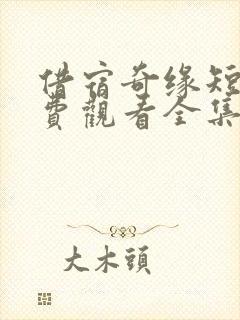 借宿奇缘短
費觀看全集
大木頭